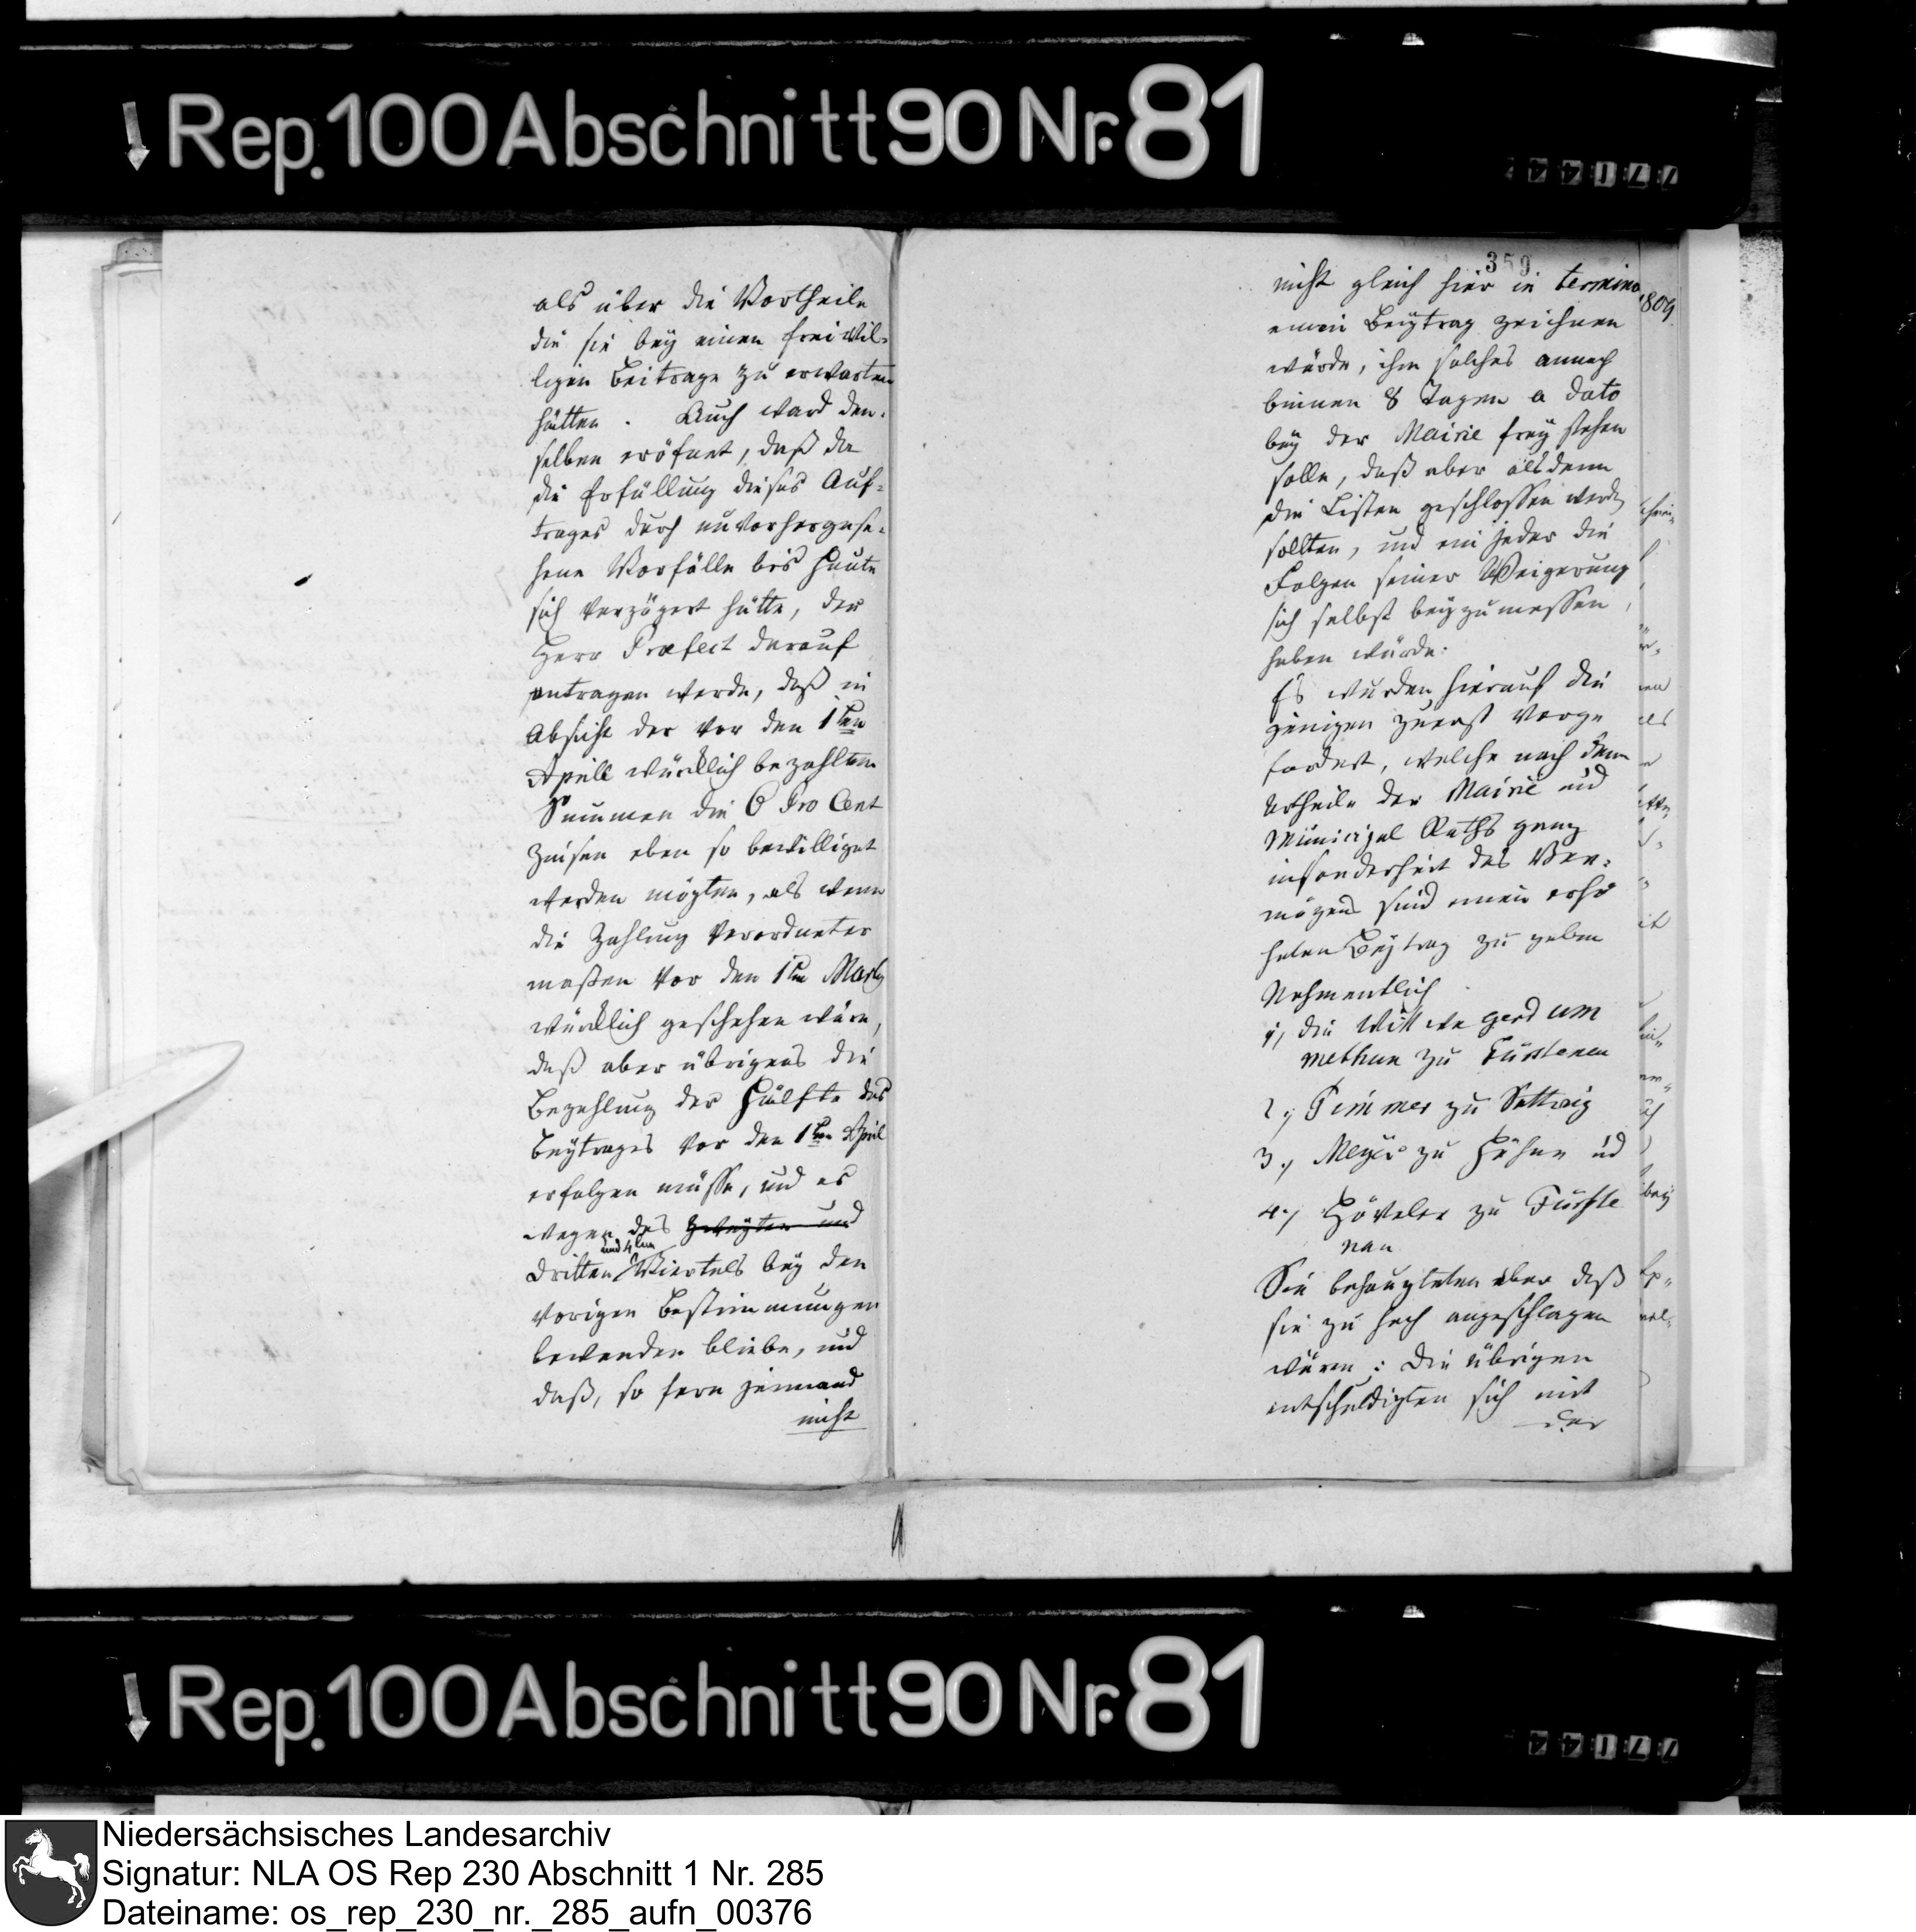 Rep. 100 Abschnitt 90 Nr. 81
als über die Vortheile
die sie bey einen freiwil-
ligen Beitrage zu erwarten
hätten. Auch ward den-
selben eröfnet, daß da
die Erfüllung dieses Auf-
trages durch unvorhergese-
hene Vorfälle bis heute
sich verzögert hätte, der
Herr Præfect darauf
antragen werde, daß in
Absicht der vor den 1ten
Aprill würcklich bezahlten
Summen die 6 Pro Cent
Zinsen eben so bewilliget
werden mögten, als wenn
die Zahlung verordneter
maßen vor den 1ten Martz
würcklich geschehen wäre,
daß aber übrigens die
Bezahlung der Hälfte des
Beytrages vor den 1ten April
erfolgen müsse, und es
wegen des zweyten und
und 4ten
dritten Viertels bey den
vorigen Bestimmungen
bewenden bliebe, und
daß, so fern jemand
nicht
359
nicht gleich hier in termino
1809
einen Beytrag zeichnen
würde, ihm solches annoch
binnen 8 Tagen a dato
bey der Mairie frey stehen
solle, daß aber alsdann
die Listen geschlossen werden
sollten, und ein jeder die
Folgen seiner Weigerung
sich selbst beyzumessen
haben würde.
Es wurden hierauf die
jenigen zuerst vorge
fordert, welche nach dem
Urtheile der Mairie und
Municipal Raths ganz
insonderheit des Ver-
mögens sind einen erhö
heten Beytrag zu geben
Nahmentlich
1, die Wittwe
zu Fürstenau
2., Timmer zu Settrup
3., Meyer zu und
4., Hövels zu Fürste
nau
Sie behaupteten aber daß
sie zu hoch angeschlagen
wären: Die übrigen
entschuldigten sich mit
der
Rep. 100 Abschnitt 90 Nr. 81
Niedersächsisches Landesarchiv
Signatur: NLA OS Rep 230 Abschnitt 1 Nr. 285
Dateiname: os_rep_230_nr._285_aufn_00376